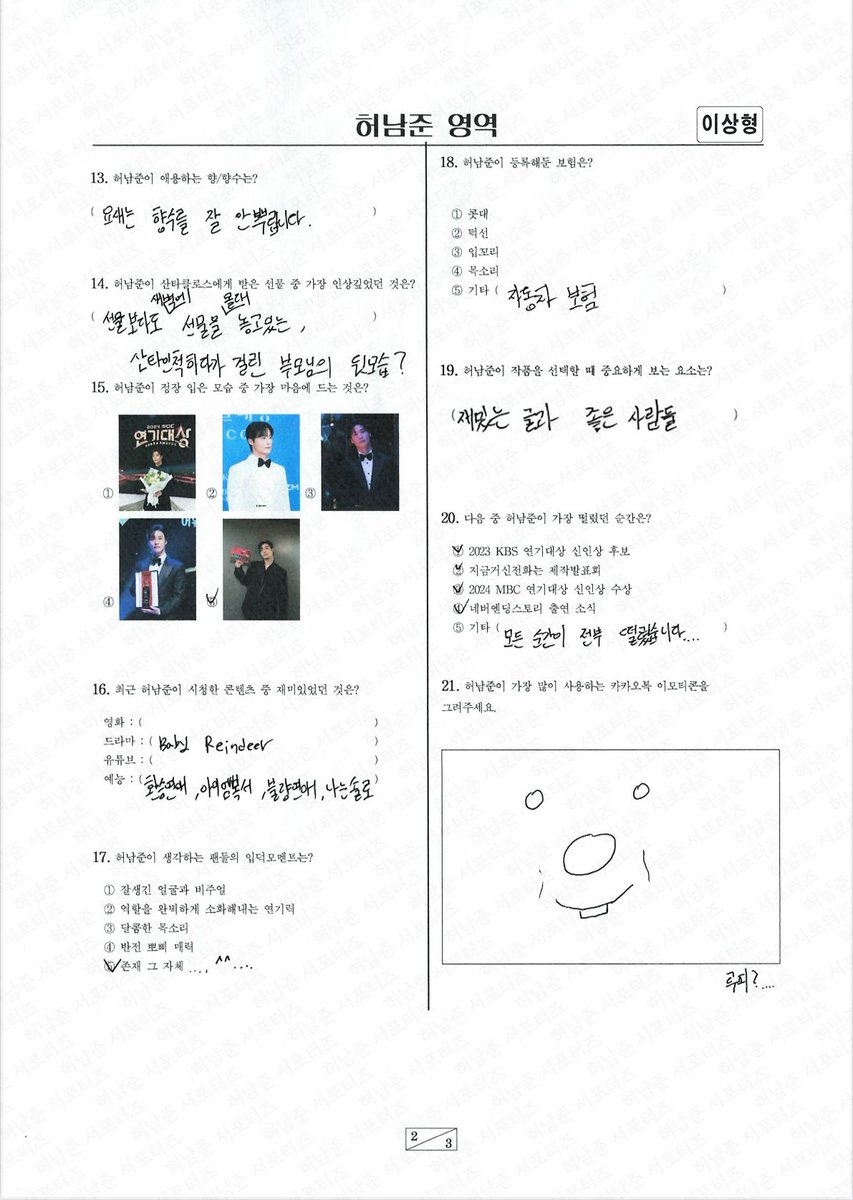 허남준 영역
이상형
13. 허남준이 애용하는 향/향수는?
( 요새는 향수를 잘 안뿌립니다. )
14. 허남준이 산타클로스에게 받은 선물 중 가장 인상깊었던 것은?
새벽에 몰래
( 선물보다도 선물을 놓고있는, )
산타인척하다가 걸린 부모님의 뒷모습?
15. 허남준이 정장 입은 모습 중 가장 마음에 드는 것은?
2024 MBC
연기대상
① ② ③
④ ⑤
16. 최근 허남준이 시청한 콘텐츠 중 재미있었던 것은?
영화 : ( )
드라마 : ( Baby Reindeer )
유튜브 : ( )
예능 : ( 환승연애, 아이엠복서, 불량연애, 나는솔로 )
17. 허남준이 생각하는 팬들의 입덕모멘트는?
① 잘생긴 얼굴과 비주얼
② 역할을 완벽하게 소화해내는 연기력
③ 달콤한 목소리
④ 반전 뽀삐 매력
⑤ 존재 그 자체 .... ^^ ....
18. 허남준이 등록해둔 보험은?
① 콧대
② 턱선
③ 입꼬리
④ 목소리
⑤ 기타 ( 자동차 보험 )
19. 허남준이 작품을 선택할 때 중요하게 보는 요소는?
( 재밌는 글과 좋은 사람들 )
20. 다음 중 허남준이 가장 떨렸던 순간은?
① 2023 KBS 연기대상 신인상 후보
② 지금거신전화는 제작발표회
③ 2024 MBC 연기대상 신인상 수상
④ 네버엔딩스토리 출연 소식
⑤ 기타 ( 모든 순간이 전부 떨렸습니다.... )
21. 허남준이 가장 많이 사용하는 카카오톡 이모티콘을
그려주세요.
루피?....
2 3
허남준 서포터즈